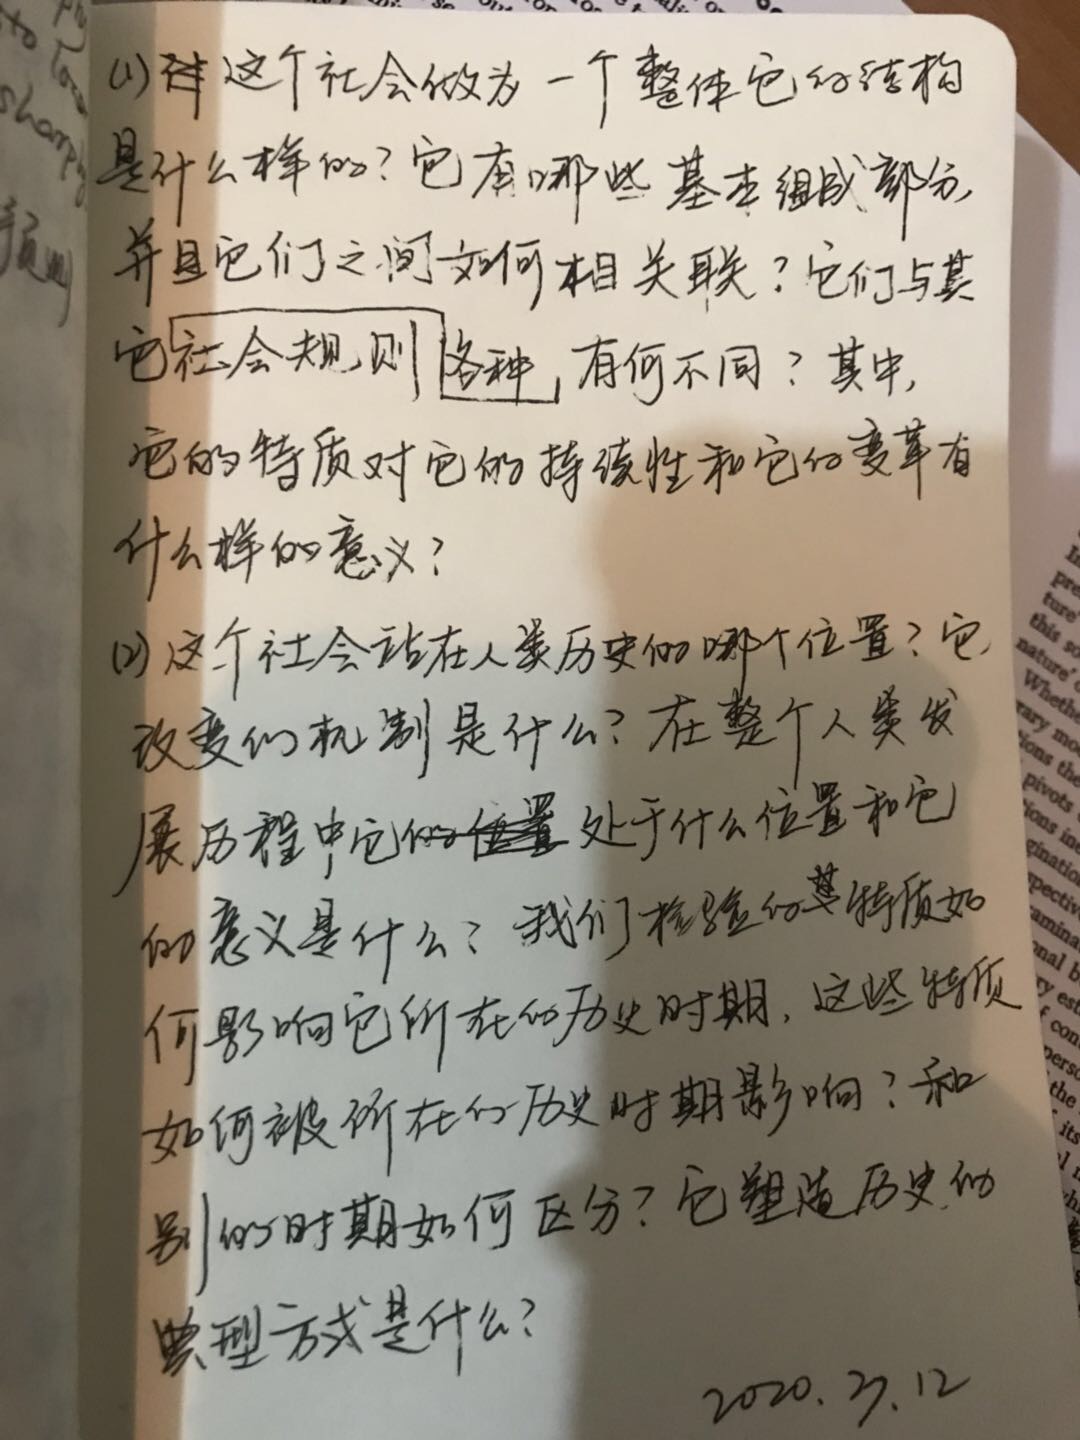 (1) 这个社会做为一个整体它的结构
是什么样的？它有哪些基本组成部分，
并且它们之间如何相关联？它们与其
它社会规则各种，有何不同？其中，
它的特质对它的持续性和它的变革有
什么样的意义？
(2) 这个社会站在人类历史的哪个位置？它
改变的机制是什么？在整个人类发
展历程中它的位置处于什么位置和它
的意义是什么？我们检验的其特质如
何影响它所在的历史时期，这些特质
如何被所在的历史时期影响？和
别的时期如何区分？它塑造历史的
典型方式是什么？
2020.
to
sharply
In
pre
ture'
this so
nature'
Whethe
rary mo
tions the
pivots
tions ine
gination
spective
xamina
onal b
ry est
f con
perso
the
its